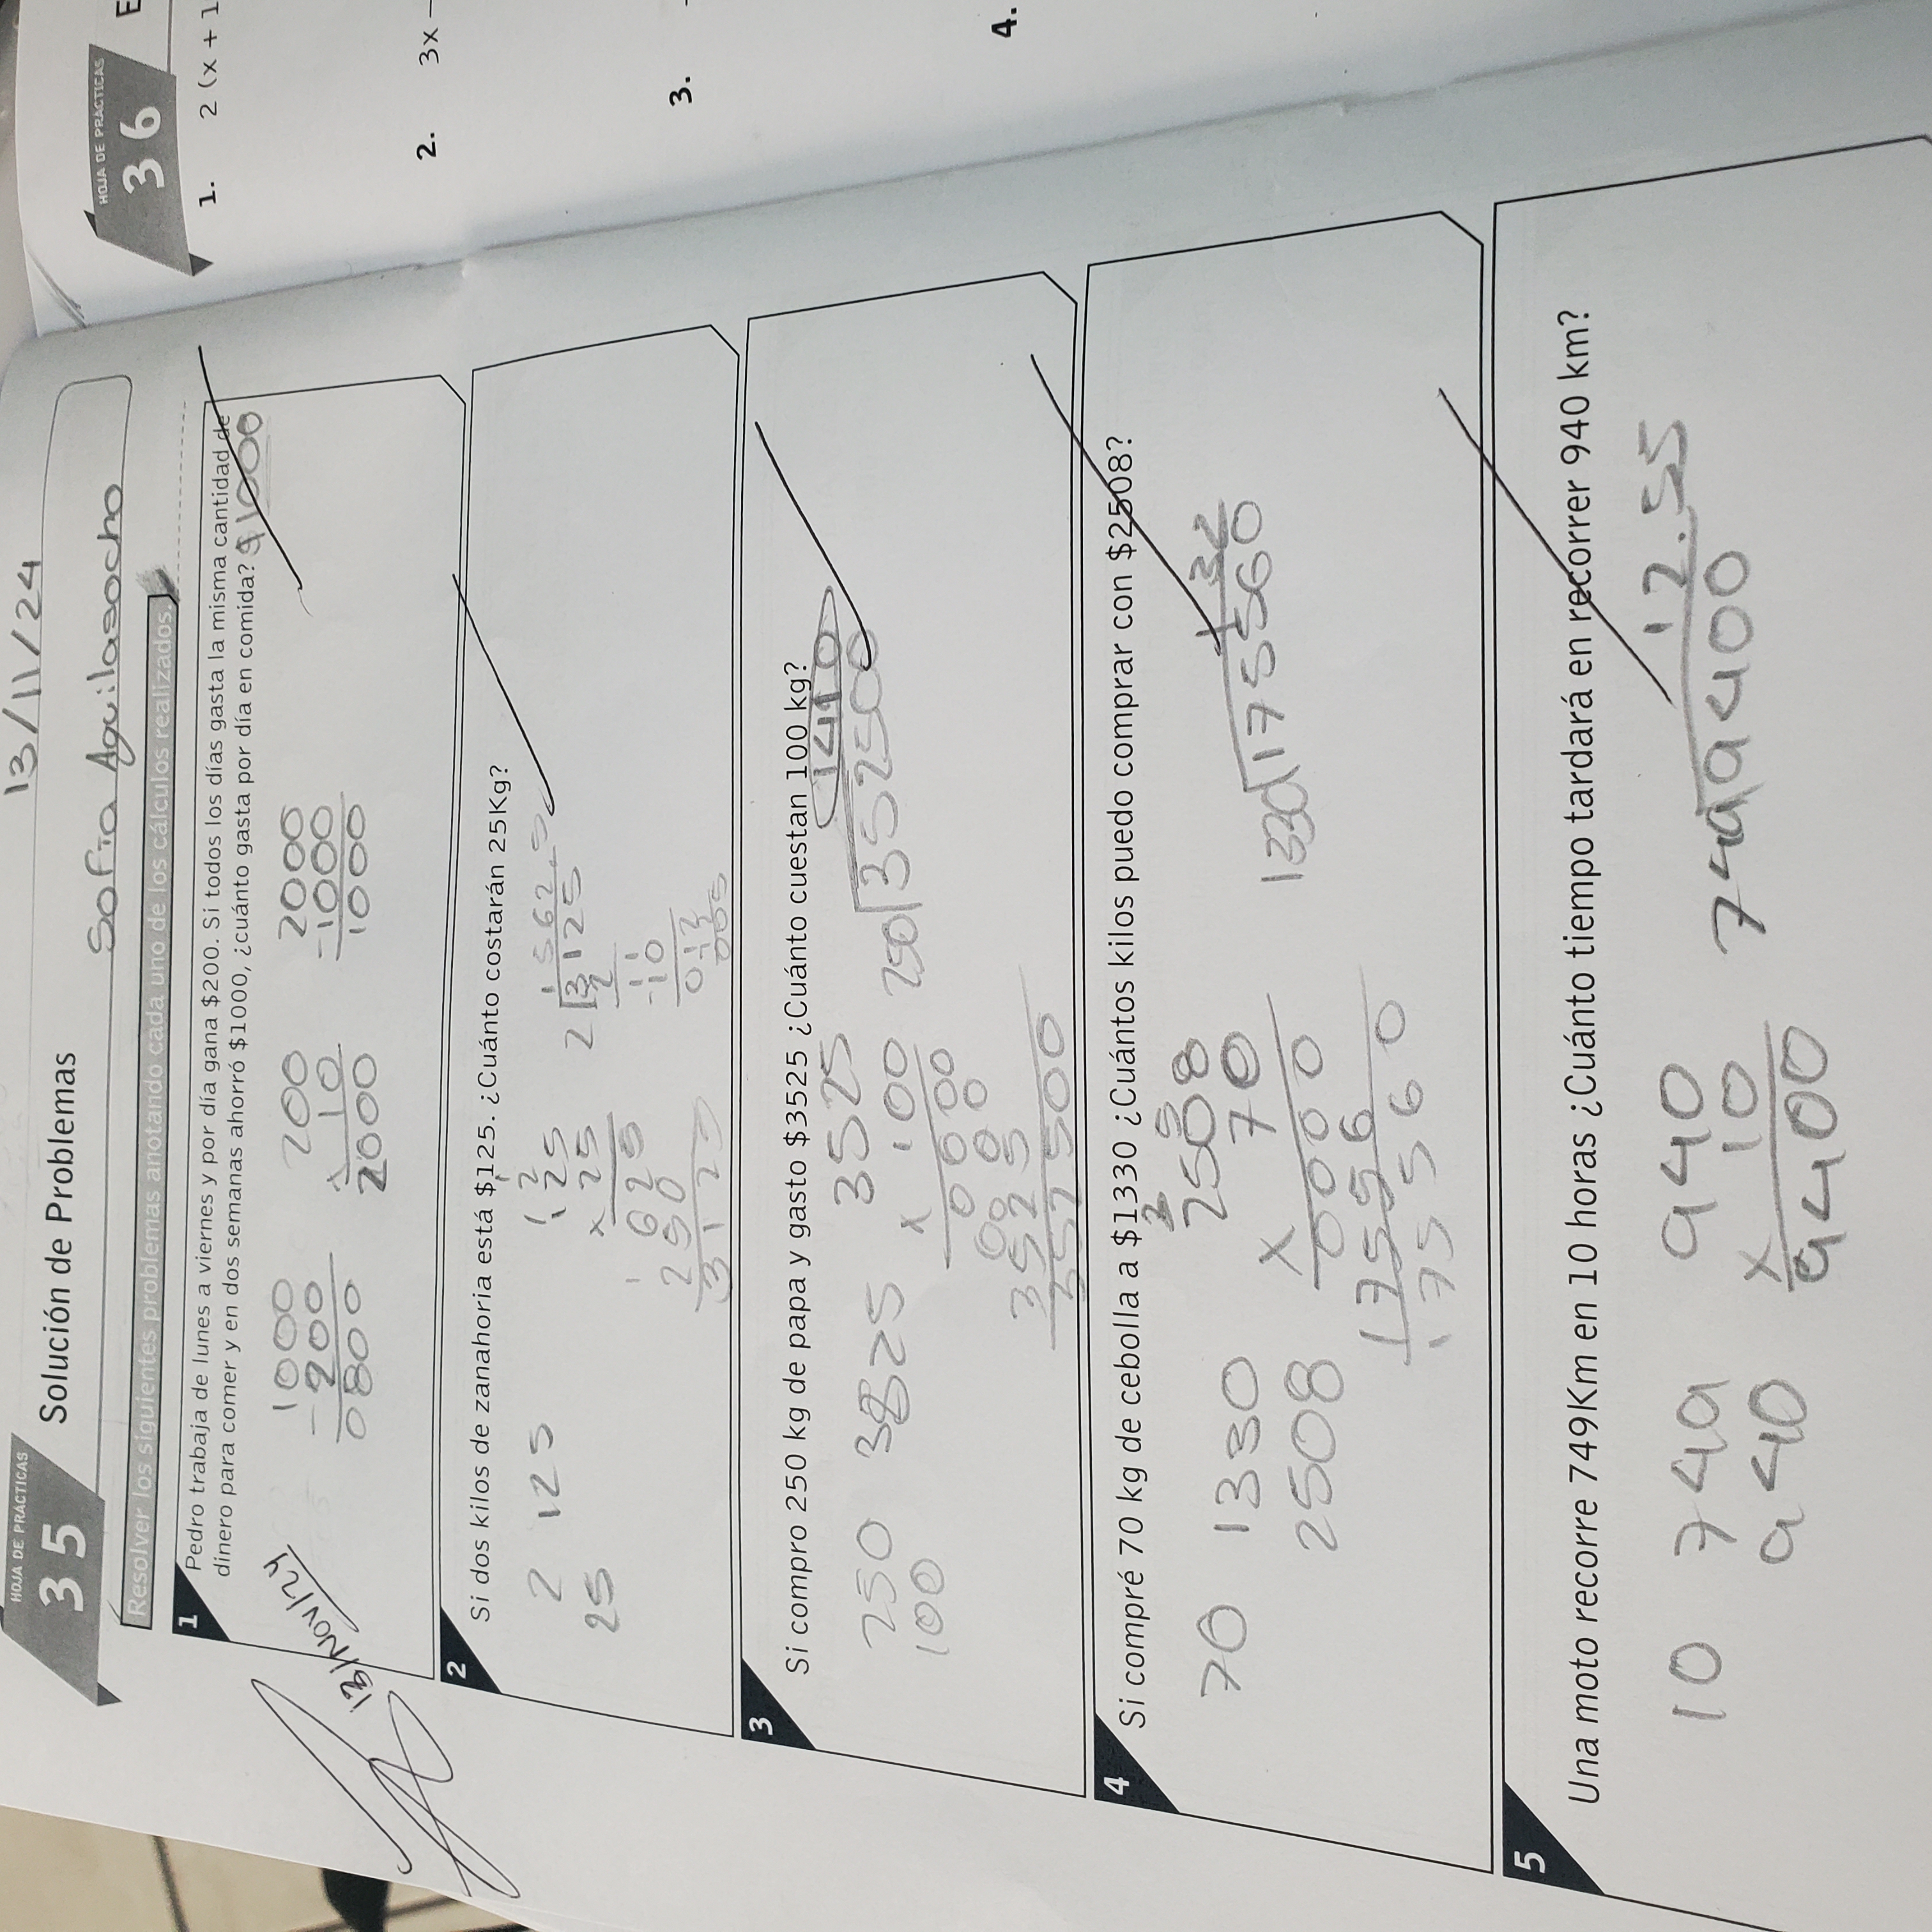 13/11/24
HOJA DE PRÁCTICAS
35
Solución de Problemas
Sofia Aguilasocho
Resolver los siguientes problemas anotando cada uno de los cálculos realizados.
1
Pedro trabaja de lunes a viernes y por día gana $200. Si todos los días gasta la misma cantidad de
dinero para comer y en dos semanas ahorró $1000, ¿cuánto gasta por día en comida? $1000
13/Nov/24
1000 200 2000
-200 x10 -1000
0800 2000 1000
2
Si dos kilos de zanahoria está $125. ¿Cuánto costarán 25Kg?
2 125
25
125
x 25
625
250
3125
2 3125
3
Si compro 250 kg de papa y gasto $3525 ¿Cuánto cuestan 100 kg?
250
100
3525
x 100
0000
0000
3525
352500
1410
250 352500
4
Si compré 70 kg de cebolla a $1330 ¿Cuántos kilos puedo comprar con $2508?
70 1330
2508
2508
x 70
0000
17556
175560
132
1330 175560
5
Una moto recorre 749Km en 10 horas ¿Cuánto tiempo tardará en recorrer 940 km?
10 749
940
940
x 10
9400
12.55
749 9400
HOJA DE PRÁCTICAS
36
E
1. 2 (x + 1
2. 3x
3.
4.